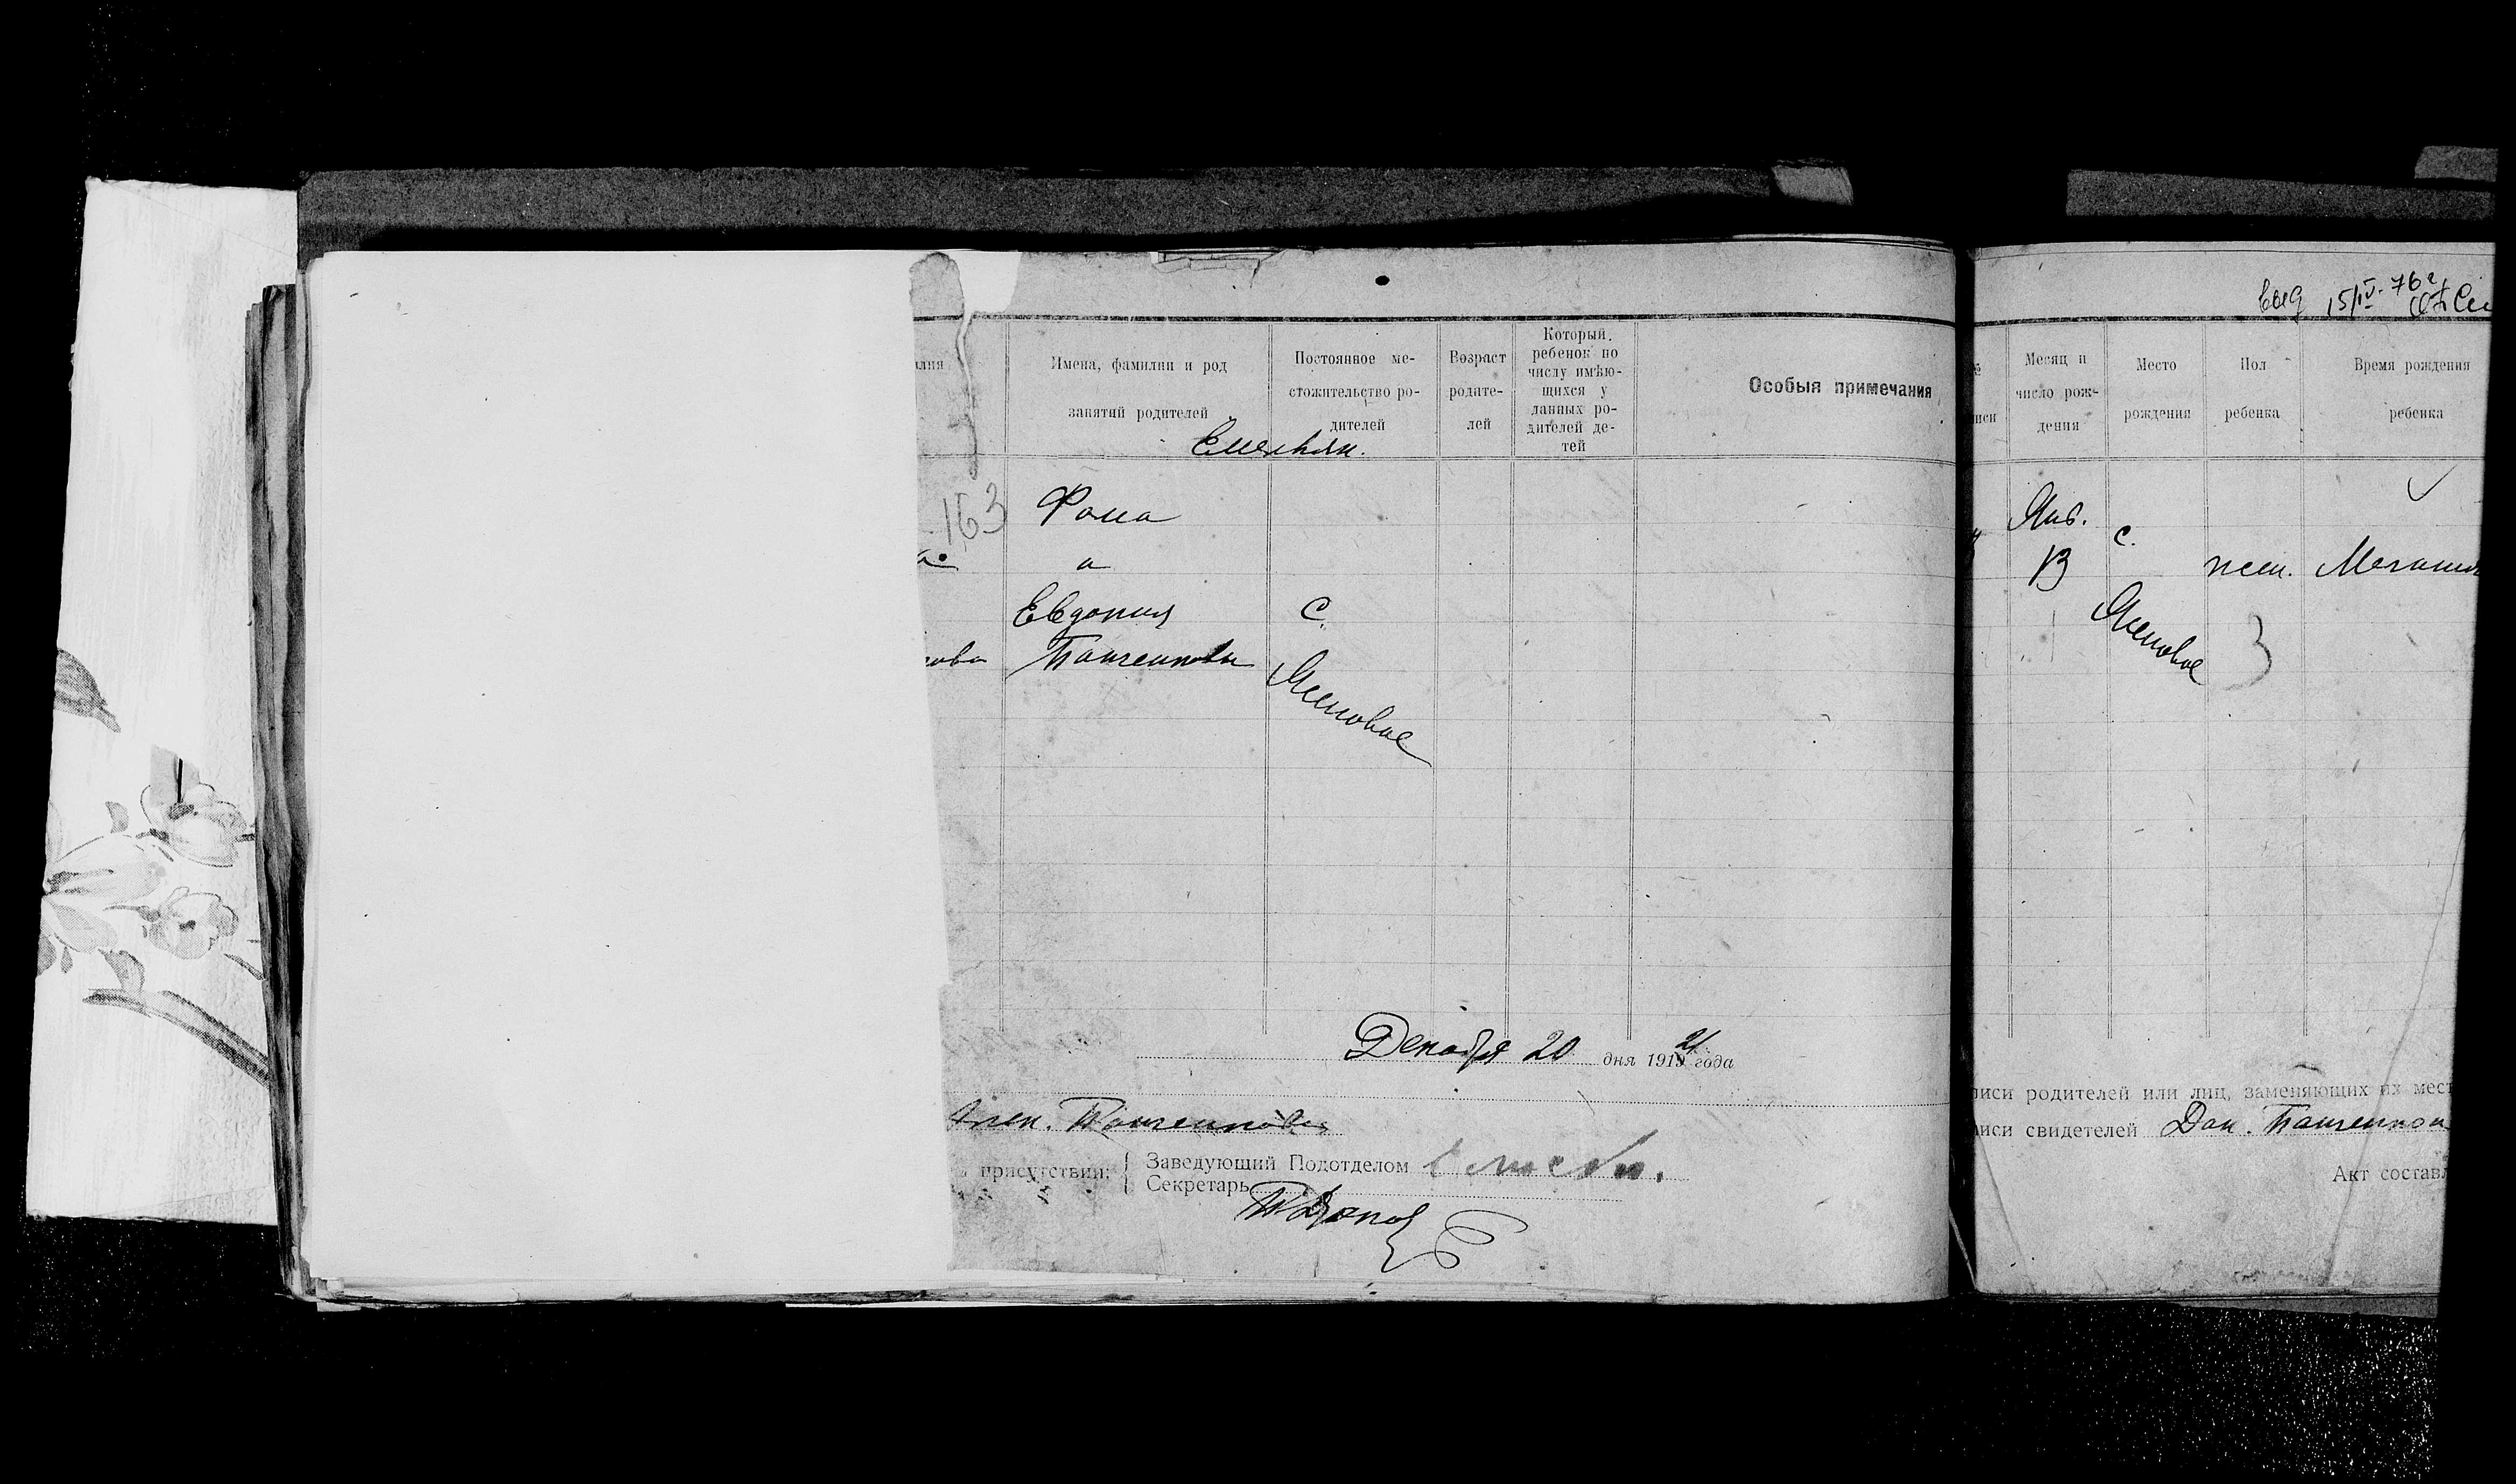 алия
Имена, фамилии и род
занятий родителей
Постоянное ме-
стожительство ро-
дителей
Возраст
родате-
лей
Который
ребенок по
числу имѣю-
щихся у
данных ро-
дителей де-
тей
Особыя примечания
Емельян.
163
Фома
а
Евдокия
С.
Панченковы
Ясиновое
Декабря 20 дня 1919 21 года
Панченкова
присутствии:
Заведующий Подотделом
Секретарь
выд 15/IV-76г
иси
Месяц и
число рож-
дения
Место
рождения
Пол
ребенка
Время рождения
ребенка
Янв.
13
с.
Ясиновое
жен.
3
иси родителей или лиц, заменяющих их мест
иси свидетелей Дан. Панченко
Акт составл